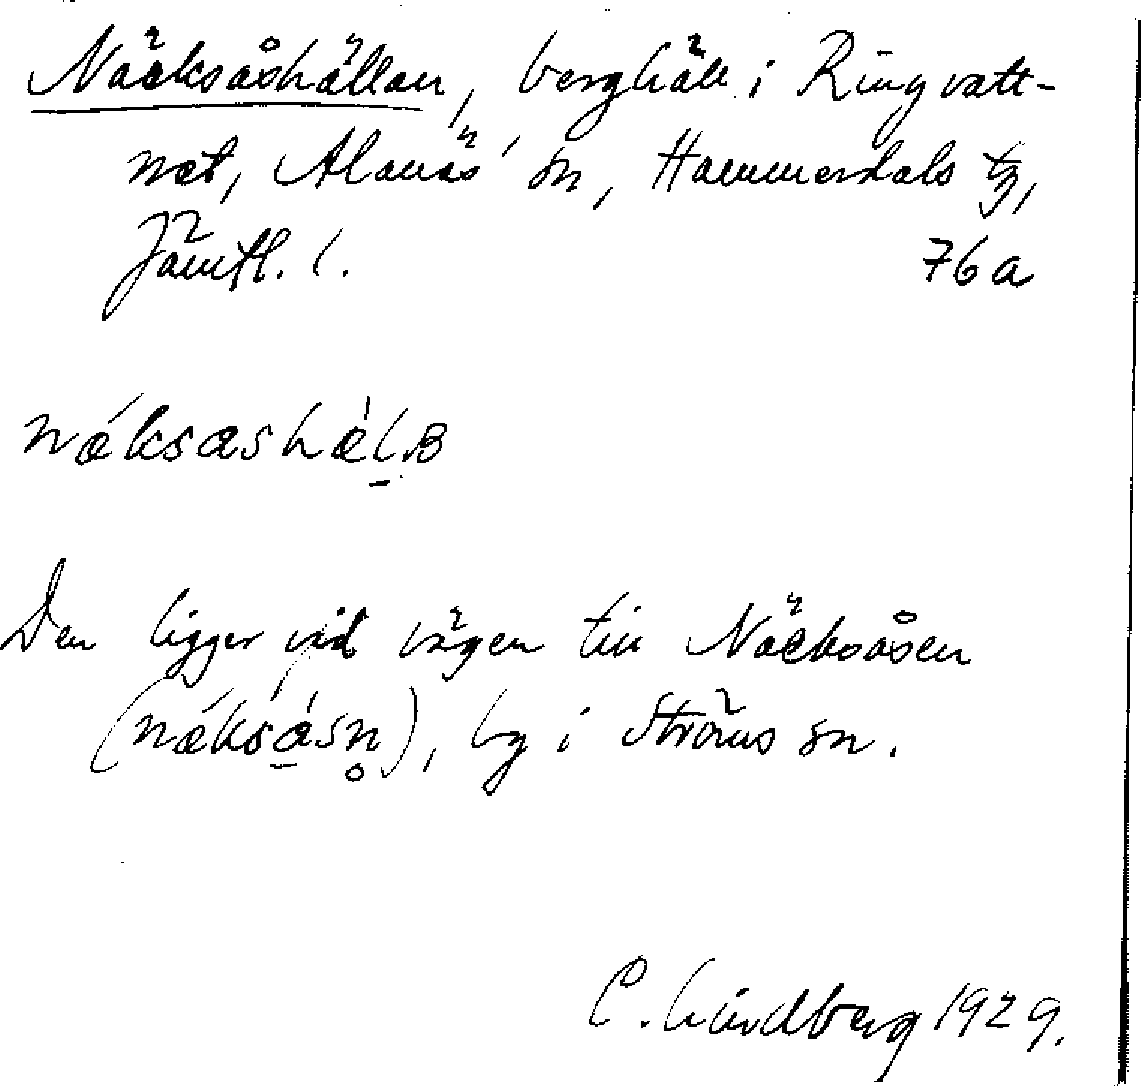 Näcksåshällan, berghäll i Ringvatt-
net, Alanäs sn, Hammerdals tg,
Jämtl. l. 76a
nǽksashæ̀l̠ʙ
Den ligger vid vägen till Näcksåsen
(nǽksá̠sn̥), by i Ströms sn.
C. Lindberg 1929.